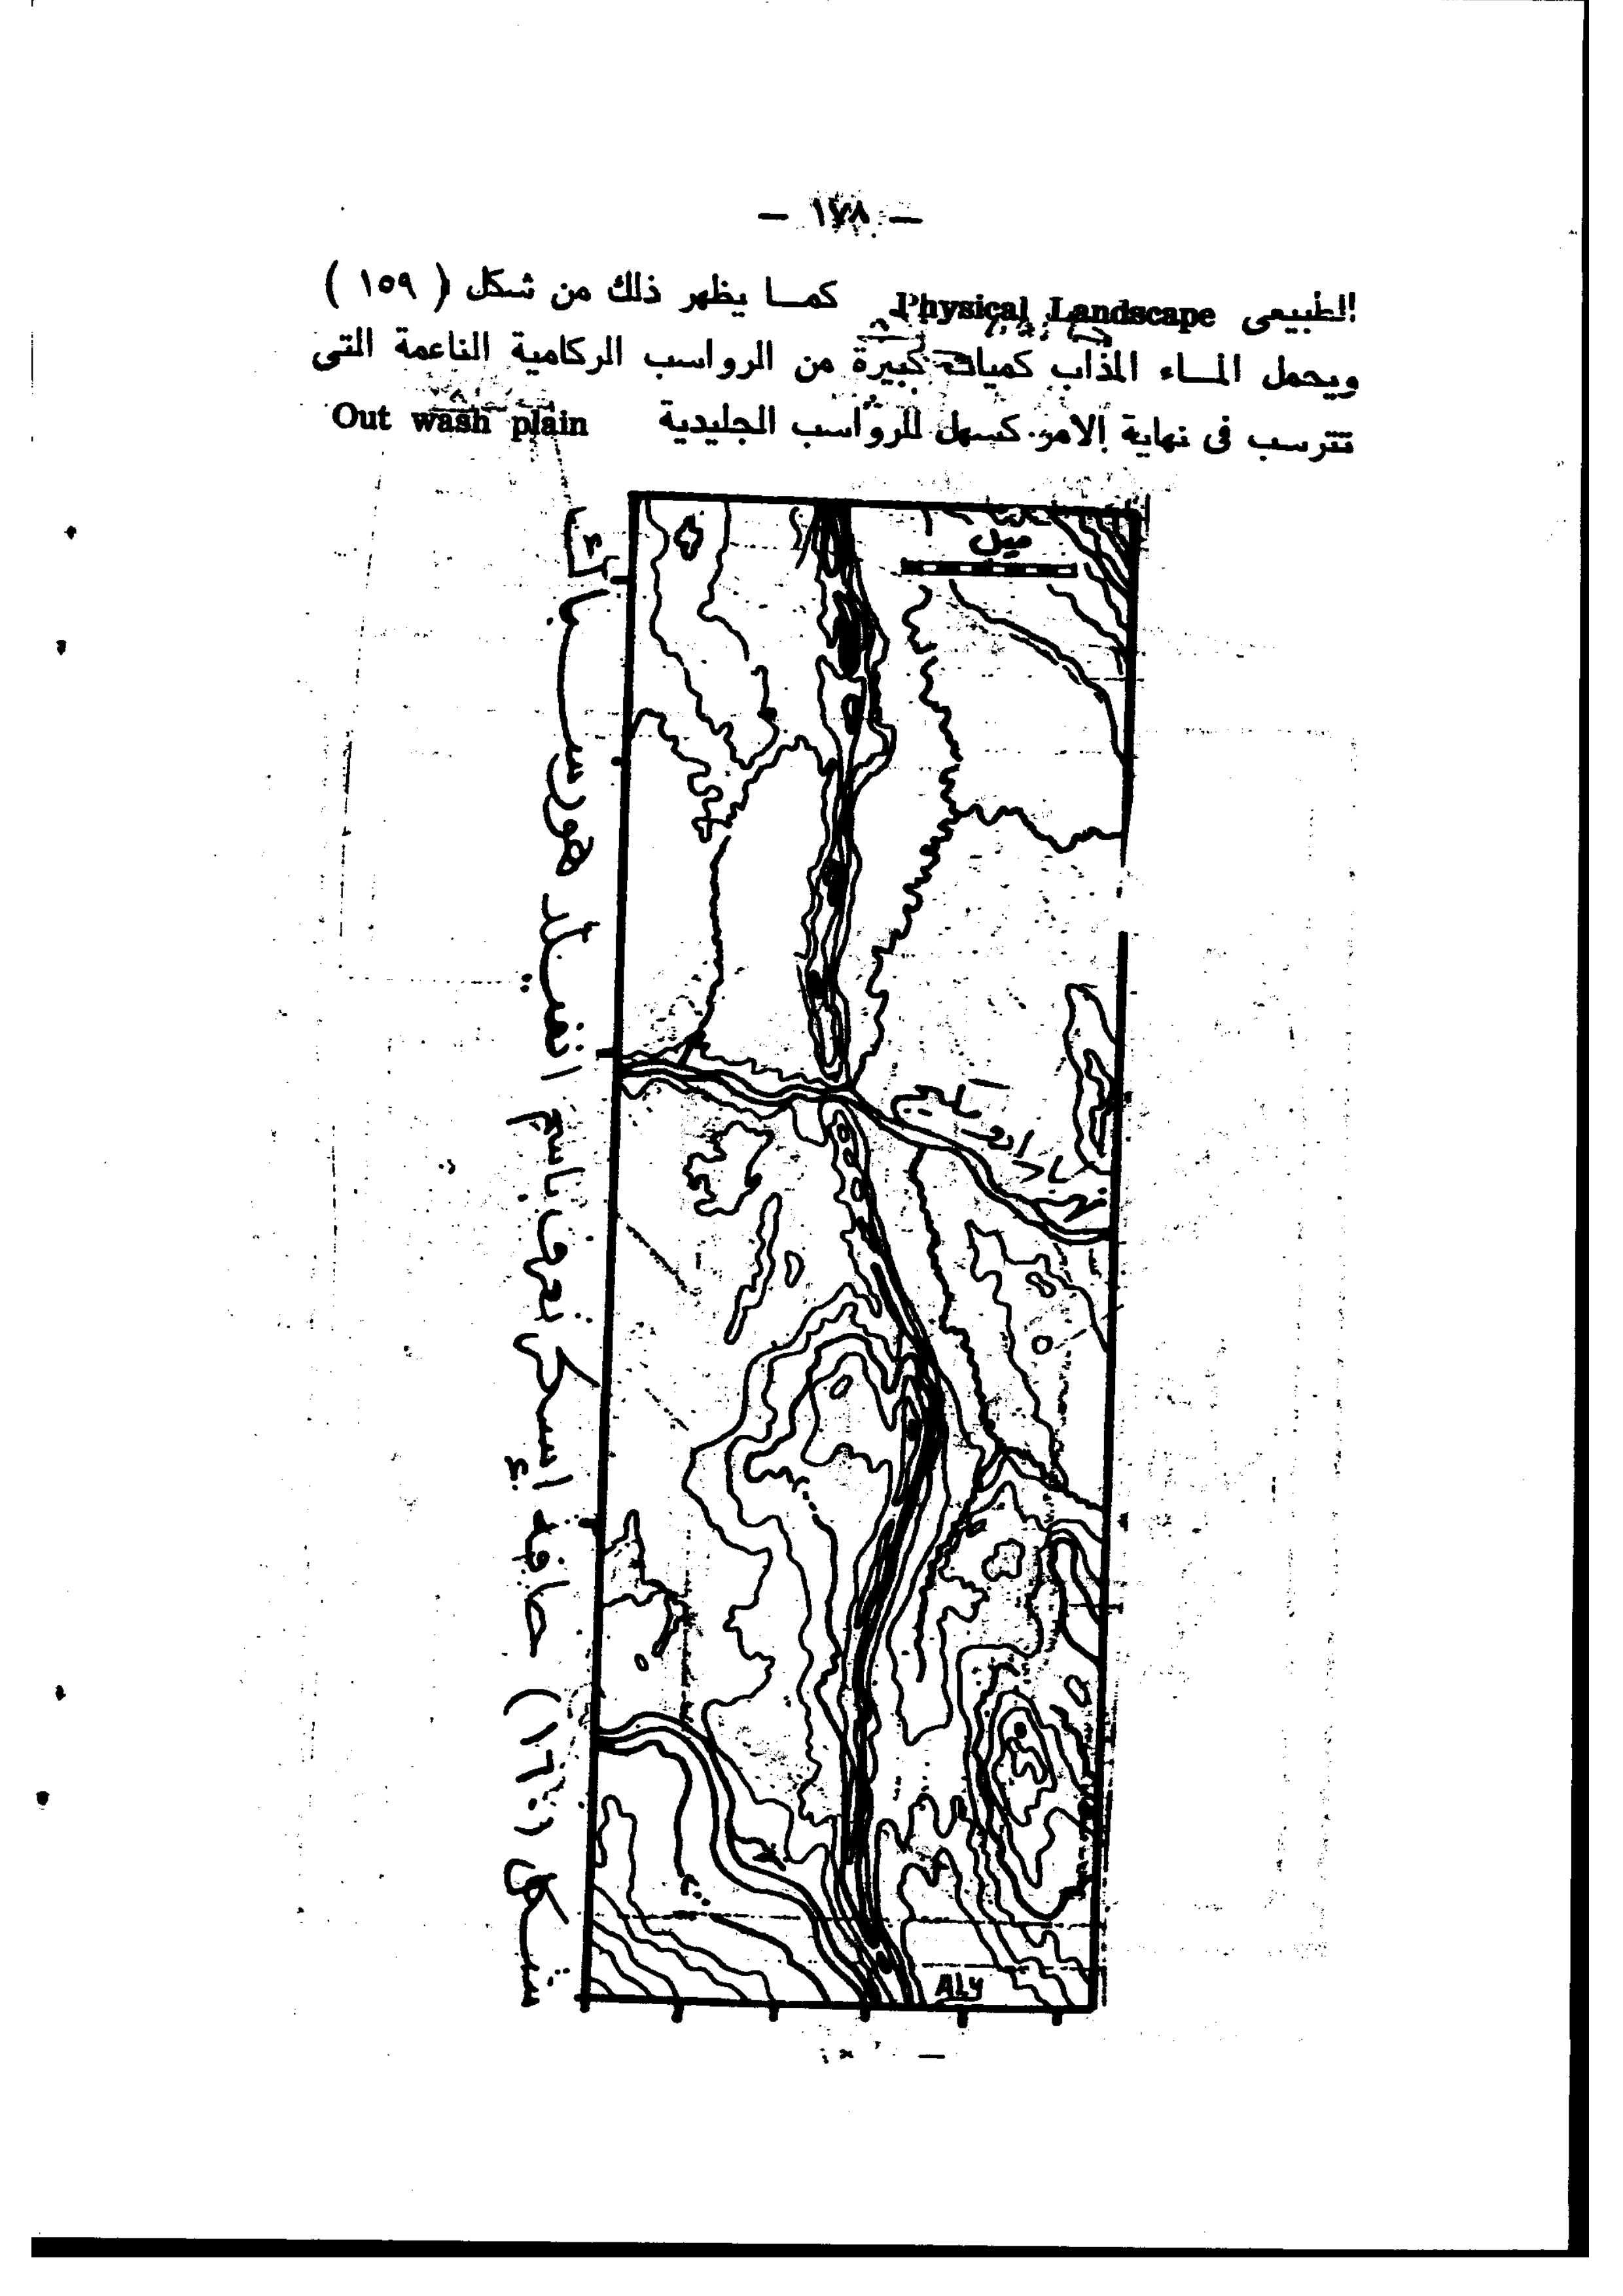 — ١٧٨ —
الطبيعى Physical Landscape كما يظهر ذلك من شكل ( ١٥٩ )
ويحمل الماء المذاب كميات كبيرة من الرواسب الركامية الناعمة التى
تترسب فى نهاية الامر كسهل للرواسب الجليدية Out wash plain
ميل
نهر
ALY
شكل (١٦٠) حافة اسكر تعرف باسم